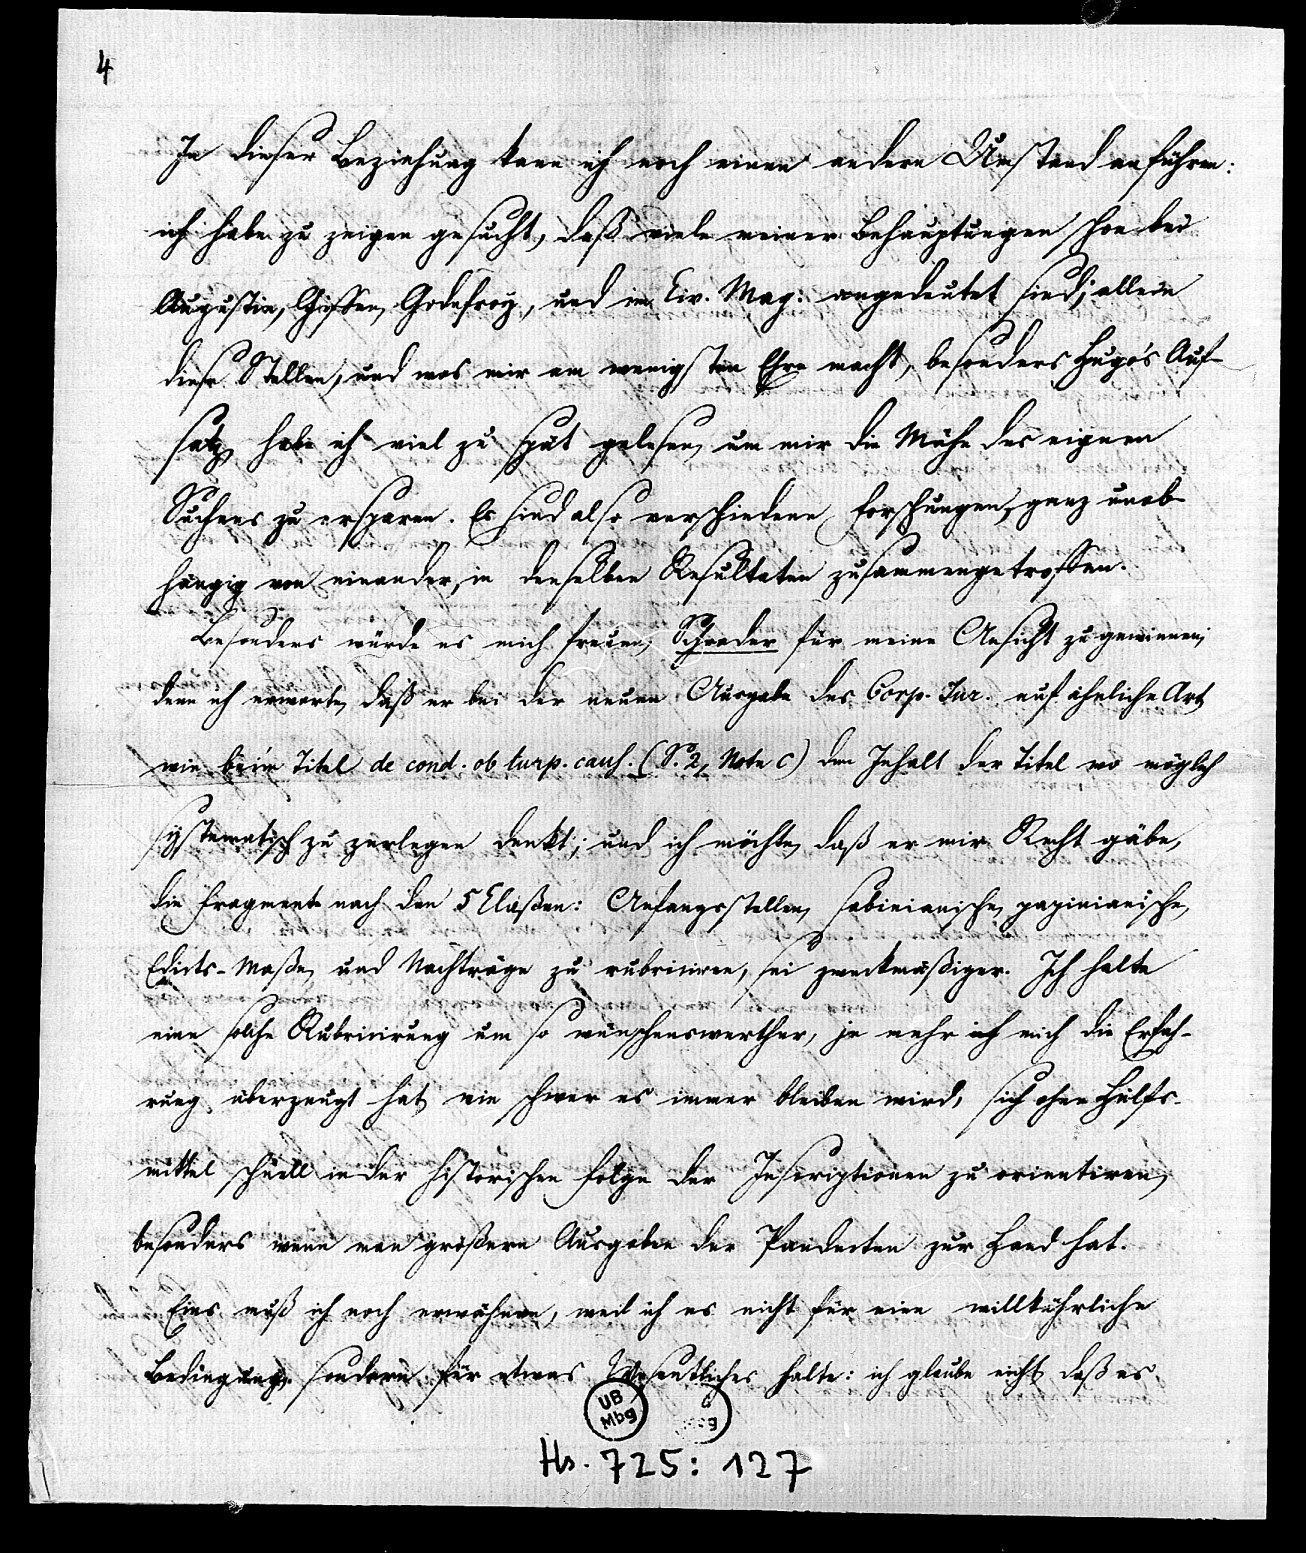 4
In dieser Beziehung kann ich noch einen andern Umstand anführen:
ich habe zu zeigen gesucht, daß viele meiner Behauptungen schon bei
Augustin, Giffen, Godefroy, und im Civ. Mag: angedeutet sind; allein
diese Stellen, und was mir am wenigsten Ehre macht, besonders Hugo's Auf-
satz, habe ich viel zu spät gelesen, um mir die Mühe des eignen
Suchens zu ersparen. Es sind also verschiedene Forschungen, ganz unab-
hängig von einander, in denselben Resultaten zusammengetroffen.
Besonders würde es mich freuen, Schrader für meine Ansicht zu gewinnen;
denn ich erwarte, daß er bei der neuen Ausgabe des Corp. Jur. auf ähnliche Art
wie beim Titel de cond. ob turp. caus. (S. 2, Note c) den Inhalt der Titel wo möglich
systematisch zu zerlegen denkt; und ich möchte, daß er mir Recht gäbe,
die Fragmente nach den 5 Claßen: Anfangsstellen, sabinianische, papinianische,
Edicts-Maße, und Nachträge zu rubriciren, sei zweckmäßiger. Ich halte
eine solche Rubricirung um so wünschenswerther, je mehr ich mich die Erfah-
rung überzeugt hat, wie schwer es immer bleiben wird, sich ohne Hülfs-
mittel schnell in der historischen Folge der Inscriptionen zu orientiren,
besonders wenn man größere Ausgaben der Pandecten zur Hand hat.
Eins muß ich noch erwähnen, weil ich es nicht für eine willkührliche
Bedingung, sondern für etwas Wesentliches halte: ich glaube nicht, daß es
UB
Mbg
Hs. 725: 127